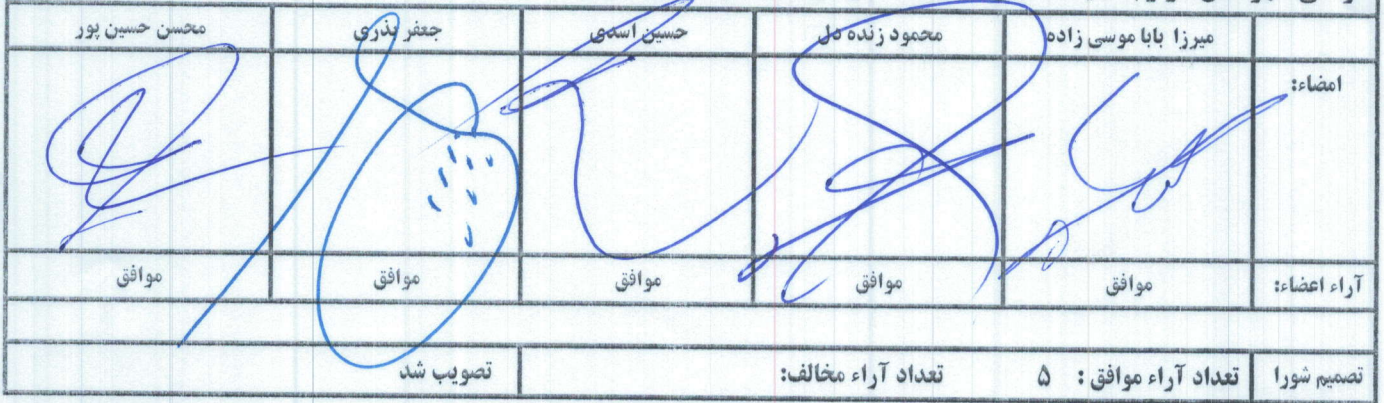 میرزا بابا موسی زاده محمود زنده دل حسین اسدی جعفر نذری محسن حسین پور
امضاء:
آراء اعضاء: موافق موافق موافق موافق موافق
تصمیم شورا تعداد آراء موافق : ۵ تعداد آراء مخالف: تصویب شد